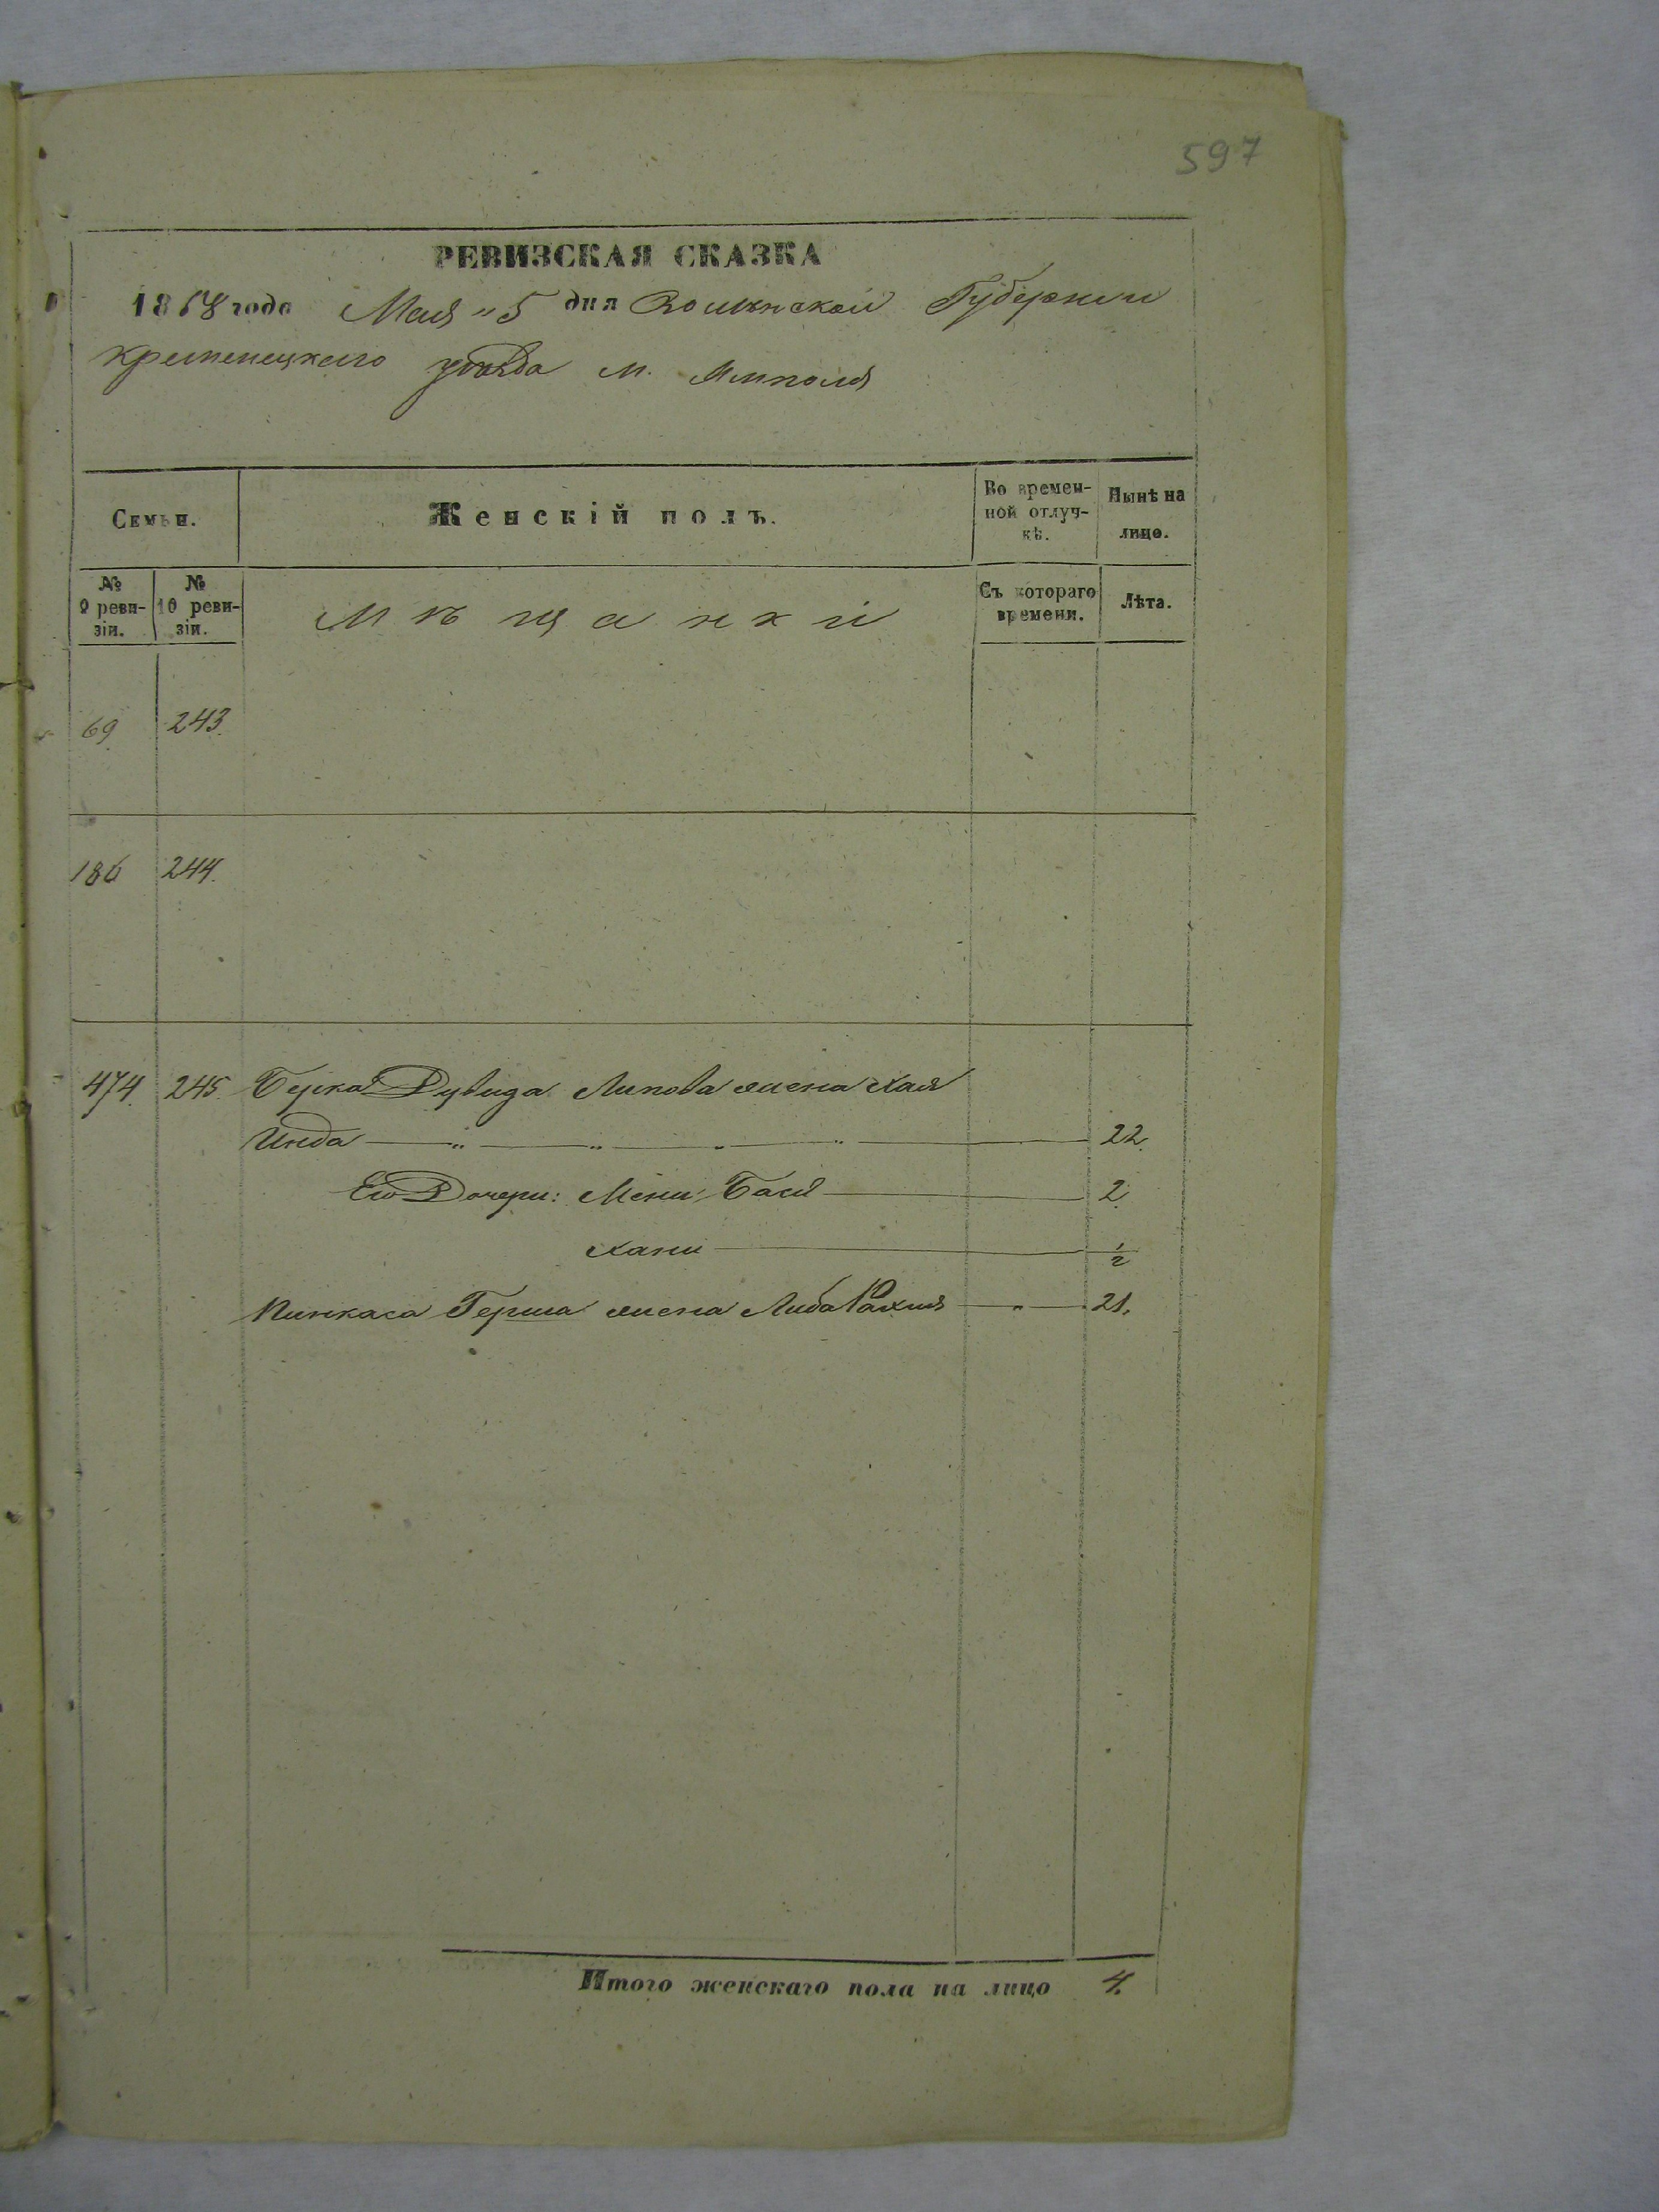 597
РЕВИЗСКАЯ СКАЗКА
1858 года Мая "5 дня Волынской Губернии
Кременецкаго уѣзда м. Ямполя
Семьи.
Женскій полъ.
Во времен-
ной отлуч-
кѣ.
Нынѣ на
лицо.
№
9 реви-
зіи.
№
10 реви-
зіи.
Мѣщанки
Съ котораго
времени.
Лѣта.
69 243.
186 244.
474. 245. Берка Дувида Липова жена Хая
Инда 22.
Его Дочери: Мени Бася 2
Хани 1/2
Пинкаса Герша жена Либа Рахля " 21.
Итого женскаго пола на лицо 4.